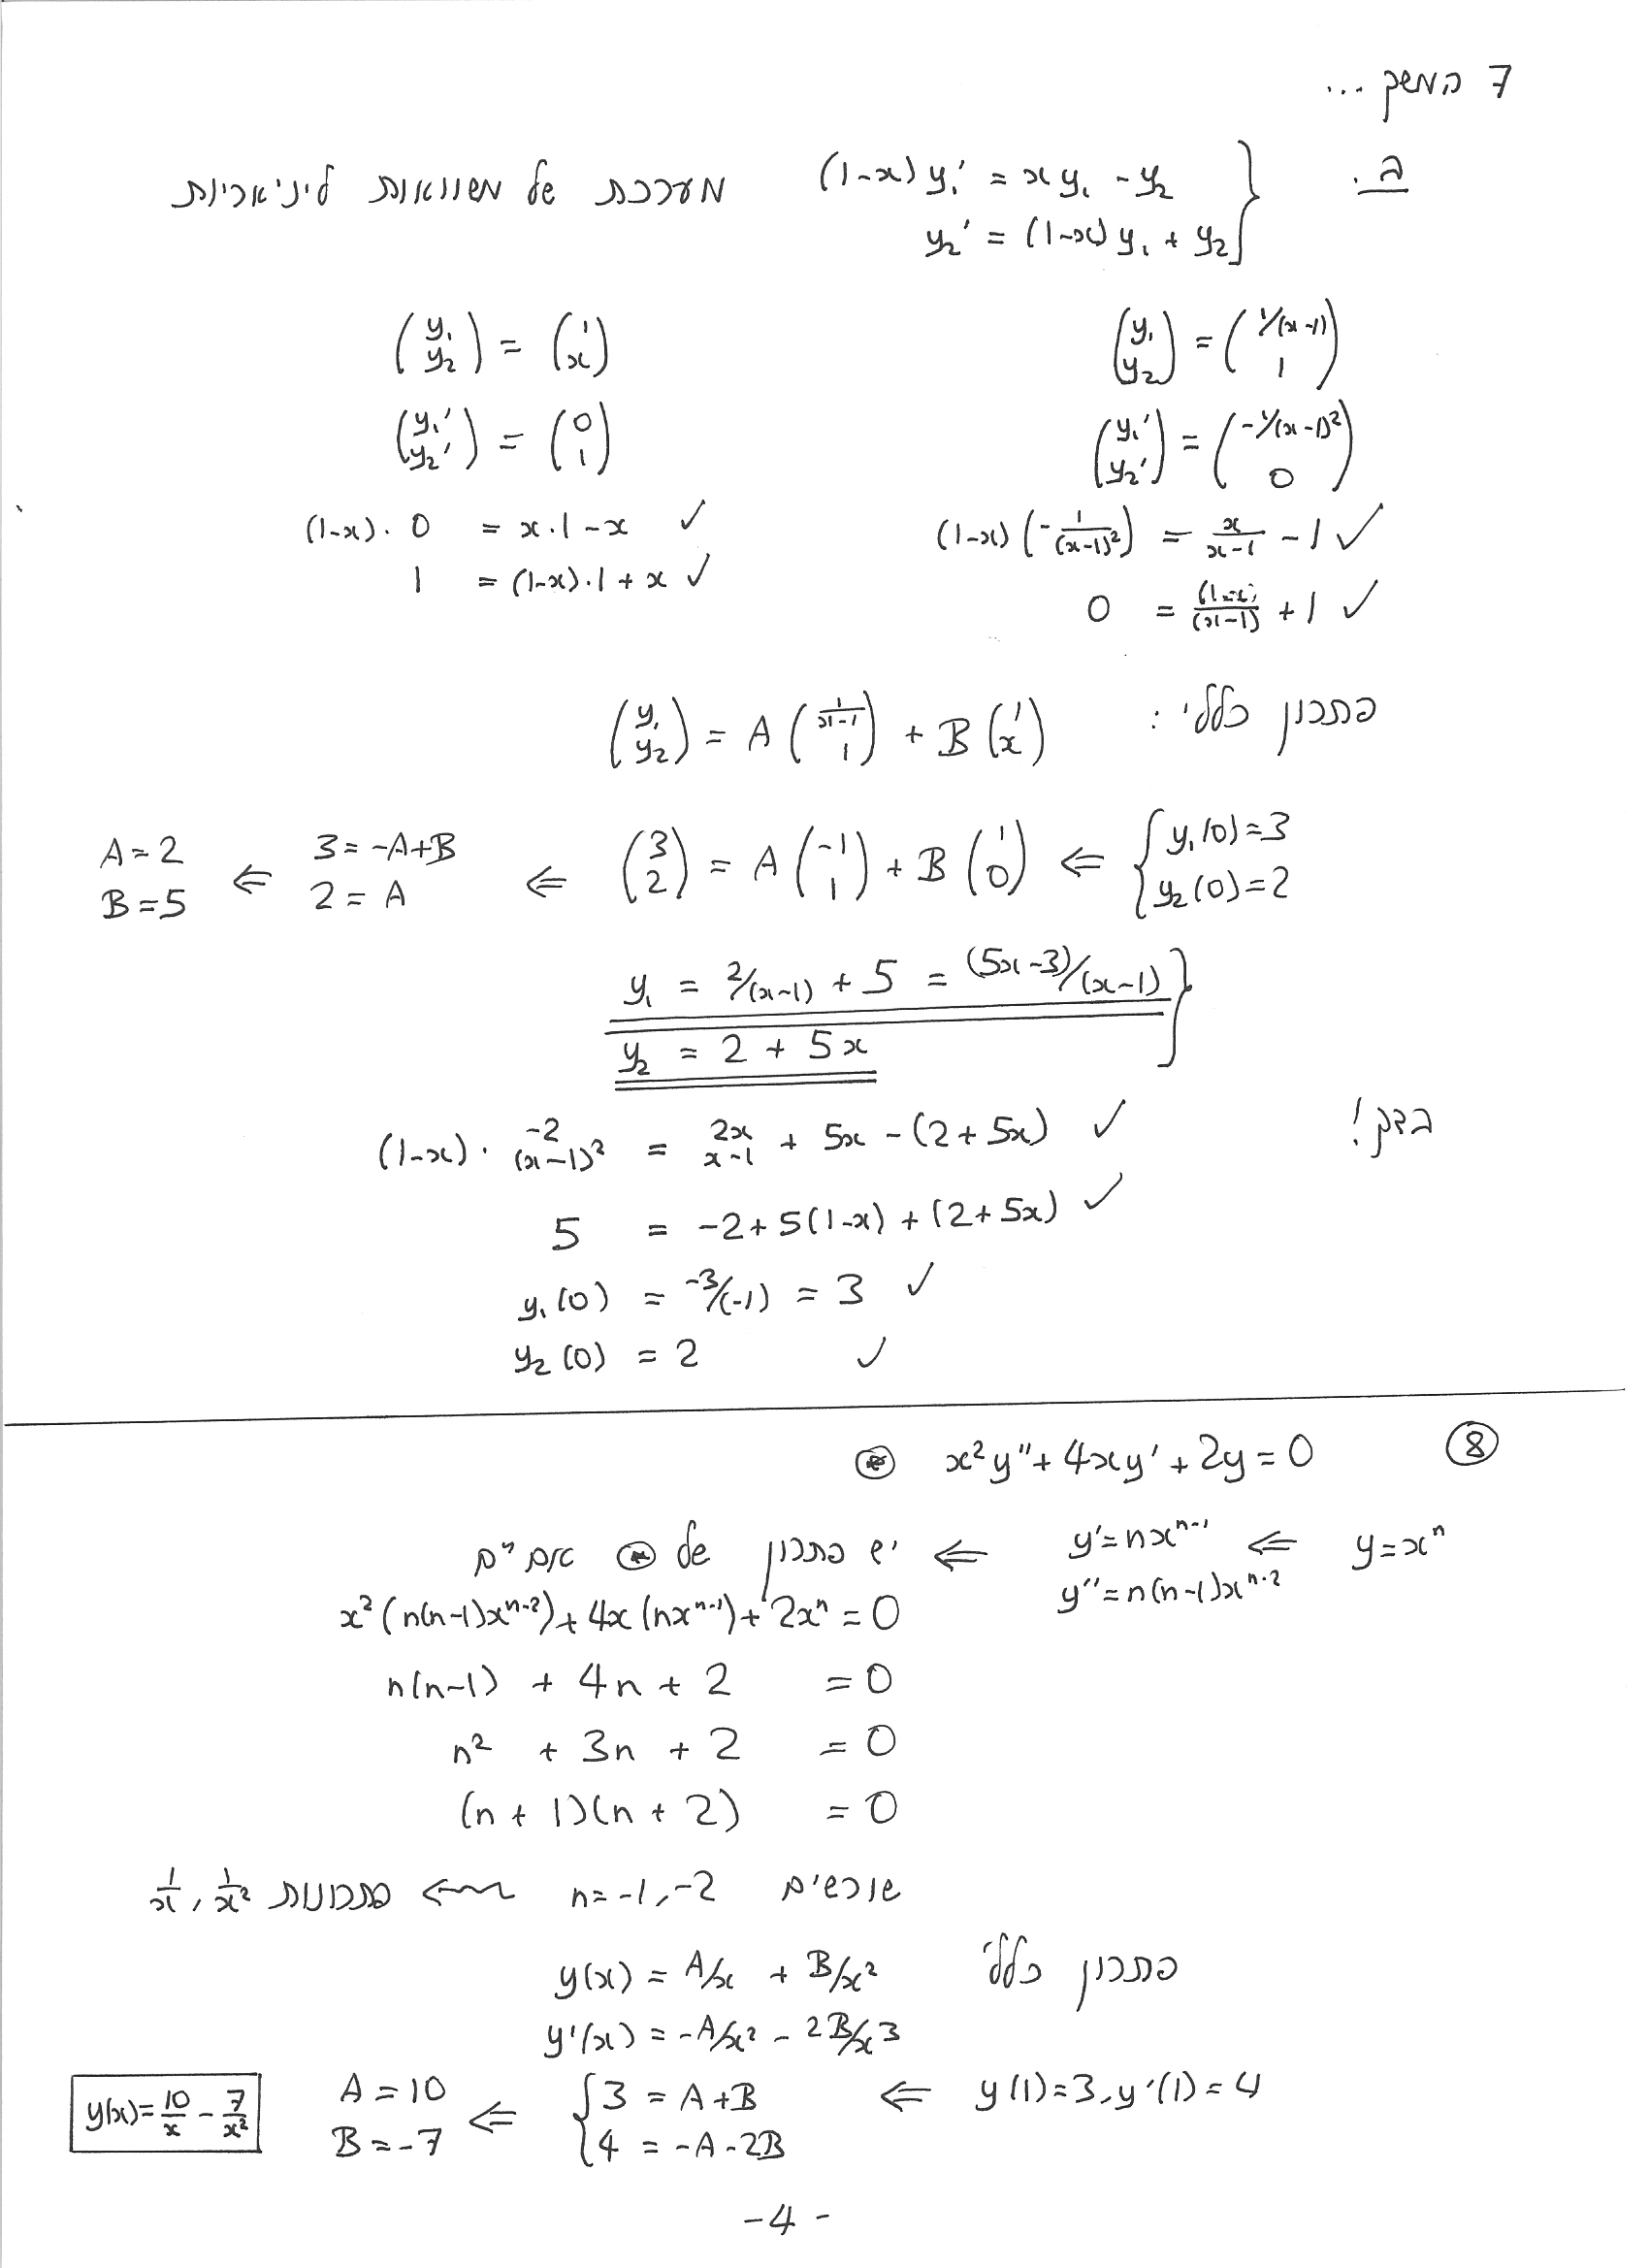 7 המשך ...
ב. (1-x) y₁' = x y₁ - y₂ } מערכת של משוואות ליניאריות
y₂' = (1-x) y₁ + y₂
(y₁ y₂) = (1/(x-1) 1) (y₁ y₂) = (1 x)
(y₁' y₂') = (-1/(x-1)² 0) (y₁' y₂') = (0 1)
(1-x)(-1/(x-1)²) = x/(x-1) - 1 ✓ (1-x)·0 = x·1 - x ✓
0 = (1-x)/(x-1) + 1 ✓ 1 = (1-x)·1 + x ✓
פתרון כללי: (y₁ y₂) = A (1/(x-1) 1) + B (1 x)
{ y₁(0)=3 y₂(0)=2 ⇐ (3 2) = A (-1 1) + B (1 0) ⇐ 3 = -A+B 2 = A ⇐ A=2 B=5
y₁ = 2/(x-1) + 5 = (5x-3)/(x-1) }
y₂ = 2 + 5x
בדק! (1-x)· -2/(x-1)² = 2x/(x-1) + 5x - (2+5x) ✓
5 = -2 + 5(1-x) + (2+5x) ✓
y₁(0) = -3/(-1) = 3 ✓
y₂(0) = 2 ✓
⑧ x²y'' + 4xy' + 2y = 0 ⊛
y=xⁿ ⇐ y'=nxⁿ⁻¹ y''=n(n-1)xⁿ⁻² ⇐ יש פתרון של ⊛ אםם
x²(n(n-1)xⁿ⁻²) + 4x(nxⁿ⁻¹) + 2xⁿ = 0
n(n-1) + 4n + 2 = 0
n² + 3n + 2 = 0
(n + 1)(n + 2) = 0
שורשים n = -1, -2 ⟿ פתרונות 1/x, 1/x²
פתרון כללי y(x) = A/x + B/x²
y'(x) = -A/x² - 2B/x³
y(1)=3, y'(1)=4 ⇐ { 3 = A+B 4 = -A-2B ⇐ A=10 B=-7 y(x) = 10/x - 7/x²
-4-